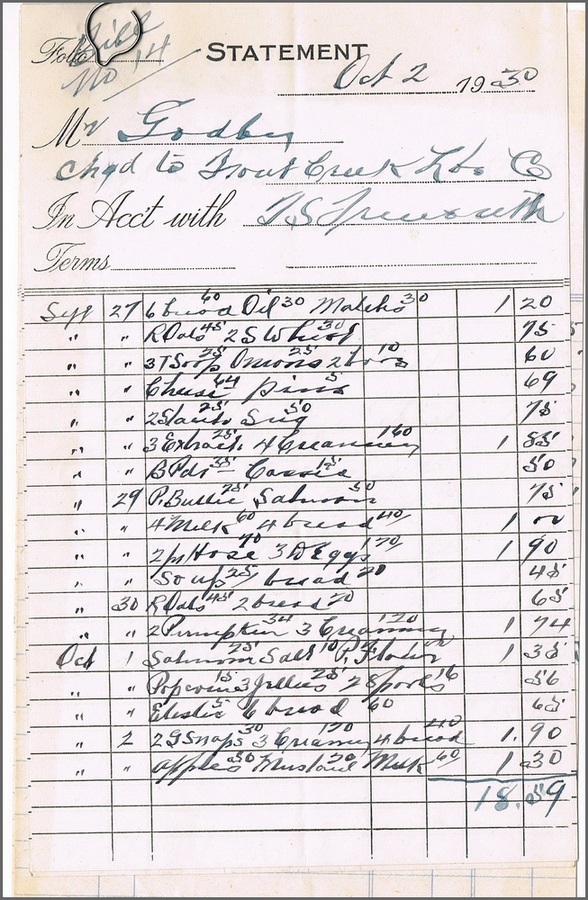 Folio Bill
No 14
STATEMENT
Oct 2 1930
Mr Godbey
Chgd to Trout Creek Lbr Co
In Acc't with T S
Terms
Sept 27 6 bread 60 Oil 30 Matches 30 1 20
" " R Oats 45 2 S Wheat 30 75
" " 3 T Soap 25 Onions 25 2 10 60
" " Cheese 64 pins 5 69
" " 2 Starch 25 Sug 50 75
" " 3 Extract 25 4 Creamery 160 1 85
" " B Pdr 35 Cassia 15 50
" 29 P. Butter 25 Salmon 50 75
" " 4 Milk 60 4 bread 40 1 00
" " 2 pr Hose 70 3 D Eggs 120 1 90
" " Soup 25 bread 20 45
" 30 R Oats 45 2 bread 20 65
" " 2 Pumpkin 34 3 Creamery 1 74
Oct 1 Salmon 25 Salt 10 P. Flour 1 35
" " Popcorn 15 3 Jellies 25 2 Spools 16 56
" " Elastic 5 6 bread 60 65
" 2 2 G Snaps 30 3 Creamery 120 4 bread 40 1.90
" " Apples 50 Mustard 20 Milk 60 1 30
18.59